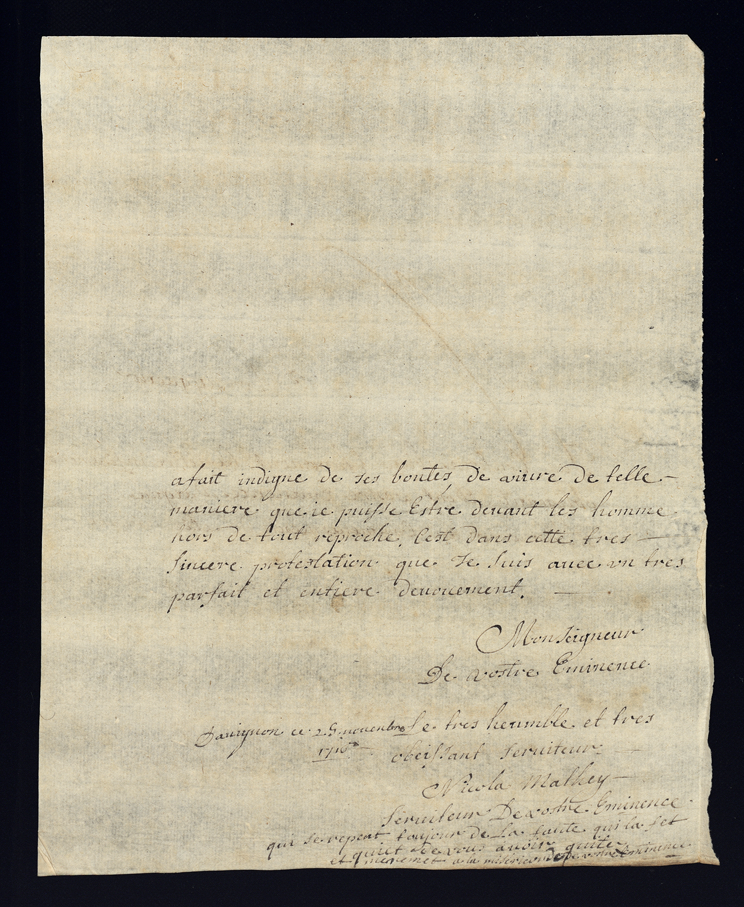 afait indigne de ses bontes, de vivre de telle
maniere que ie puisse Estre devant les homme
hors de tout reproche, C'est dans cette tres
sincere protestation que Je suis avec un tres
parfait et entiere devouement.
Monseigneur
De vostre Eminence
Davignon ce 25 novembre Le tres heumble et tres
171 obeissant serviteur
Nicola Malhey
serviteur De vostre Eminence
qui se repent toujour de la faute qui la fet
et quiet de vous avoir quité
et me remet a la misericorde de votre Eminence